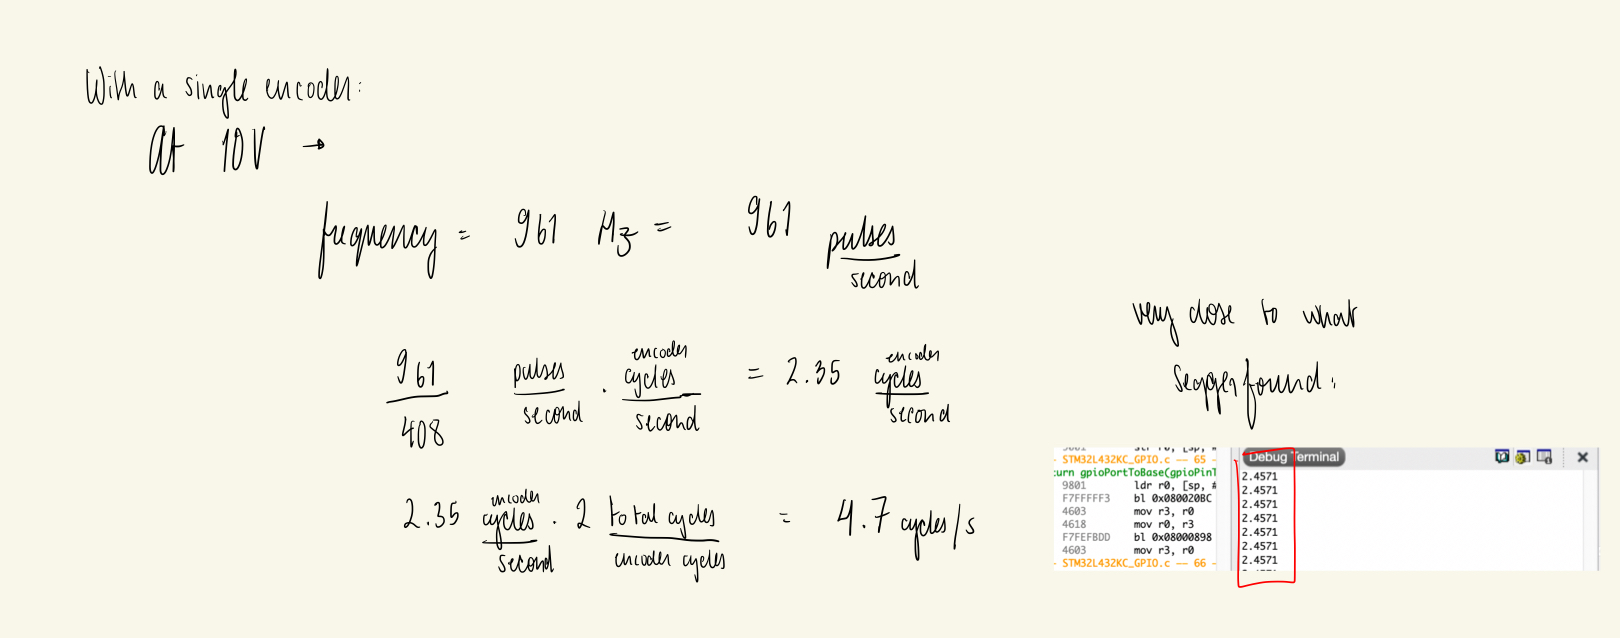 With a single encoder:
At 10V →
frequency = 961 Hz = 961 pulses/second
961/408 pulses/second · encoder cycles/second = 2.35 encoder cycles/second
2.35 encoder cycles/second · 2 total cycles/encoder cycles = 4.7 cycles/s
very close to what
Segger found:
STM32L432KC_GPIO.c -- 65 -
urn gpioPortToBase(gpioPinT
9801 ldr r0, [sp, #
F7FFFFF3 bl 0x080020BC
4603 mov r3, r0
4618 mov r0, r3
F7FEFBDD bl 0x08000898
4603 mov r3, r0
STM32L432KC_GPIO.c -- 66 -
Debug Terminal
2.4571
2.4571
2.4571
2.4571
2.4571
2.4571
2.4571